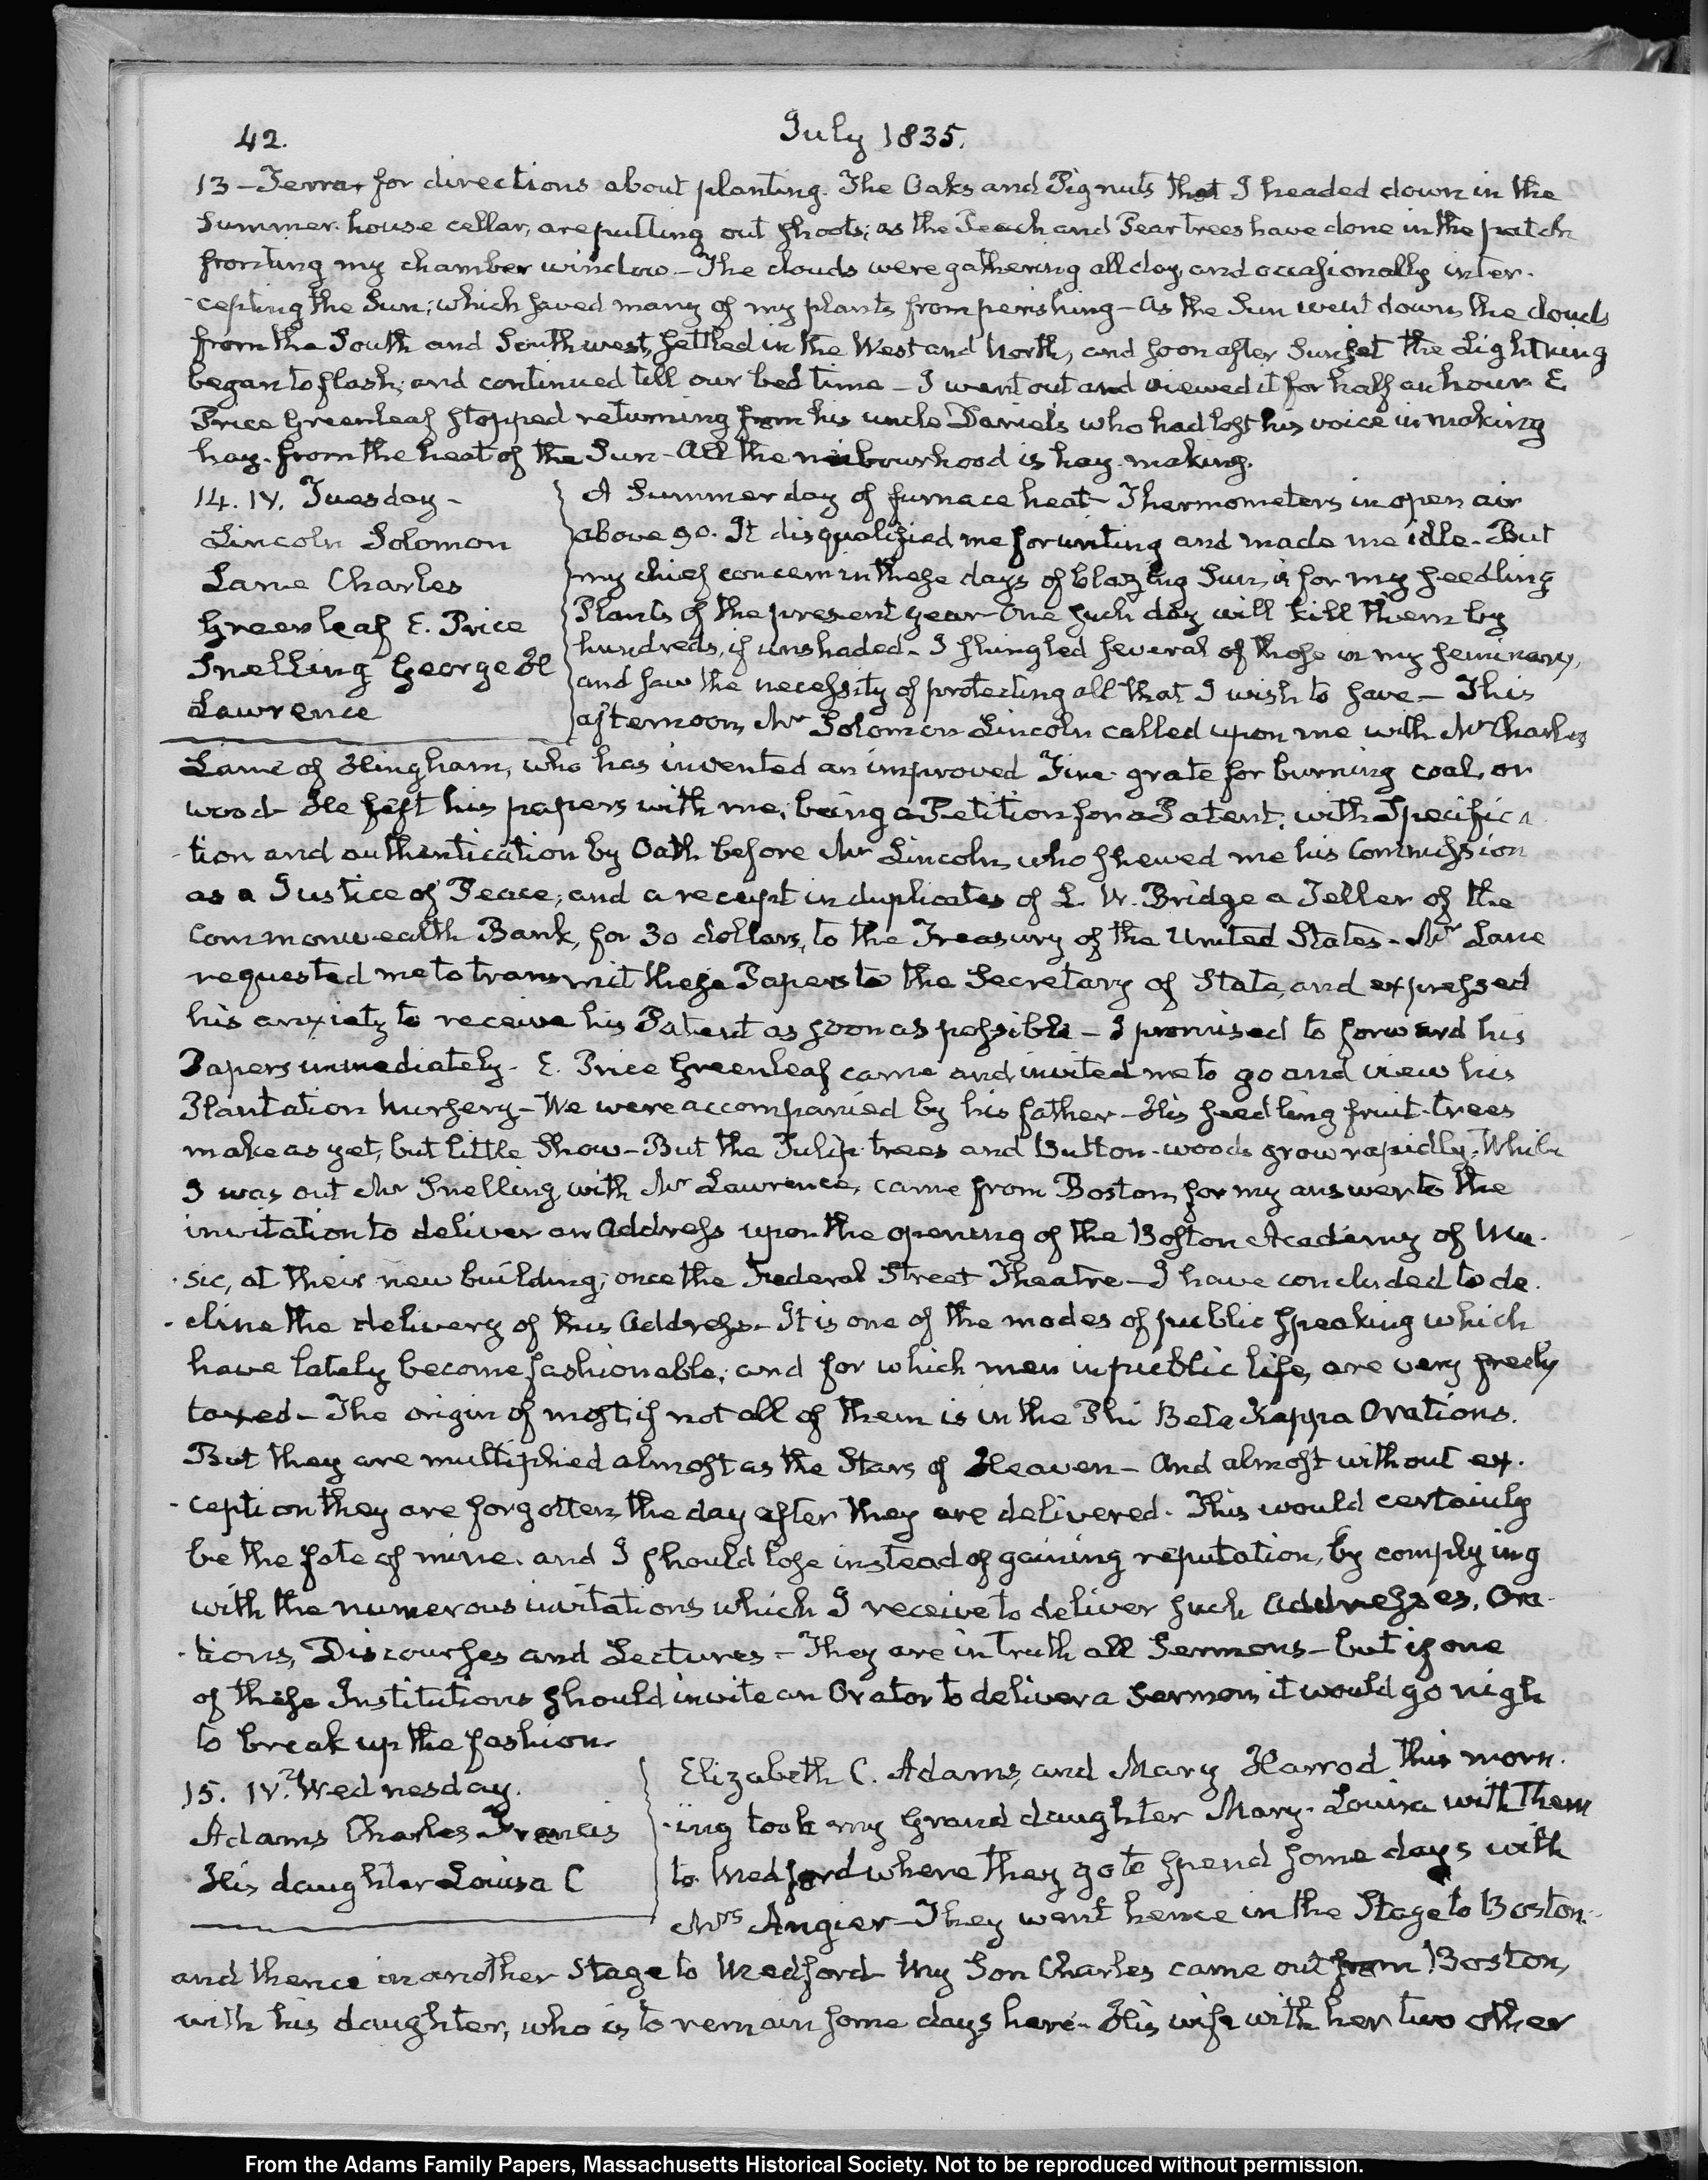 42.
July 1835.
13 - Terra, for directions about planting. The Oaks and Pignuts that I headed down in the
Summer-house cellar, are putting out shoots; as the Peach and Pear trees have done in the patch
fronting my chamber window - The clouds were gathering all day, and occasionally inter-
-cepting the Sun; which saved many of my plants from perishing - As the Sun went down, the clouds
from the South and Southwest, settled in the West and North, and soon after Sunset the Lightning
began to flash; and continued till our bed time - I went out and viewed it for half an hour. E.
Price Greenleaf stopped returning from his uncle Daniels who had lost his voice in making
hay. from the heat of the Sun - All the neibourhood is hay-making.
14. IV. Tuesday -
Lincoln Solomon
Lane Charles
Greenleaf E. Price
Snelling George H
Lawrence
A Summer day of furnace heat - Thermometers in open air
above 90. It disqualified me for writing and made me idle - But
my chief concern in these days of blazing Sun, is for my seedling
Plants of the present year - One such day will kill them by
hundreds, if unshaded - I shingled several of those in my seminary,
and saw the necessity of protecting all that I wish to save - This
afternoon, Mr Solomon Lincoln called upon me with Mr Charles
Lane of Hingham, who has invented an improved Fire-grate for burning coal, or
wood - He left his papers with me; being a Petition for a Patent, with Specifica
-tion and authentication by Oath before Mr Lincoln, who shewed me his Commission
as a Justice of Peace; and a receipt in duplicates of L. W. Bridge a Teller of the
Commonwealth Bank, for 30 dollars, to the Treasury of the United States - Mr Lane
requested me to transmit these Papers to the Secretary of State, and expressed
his anxiety to receive his Patent as soon as possible - I promised to forward his
Papers immediately - E. Price Greenleaf came and invited me to go and view his
Plantation Nursery - We were accompanied by his father - His seedling fruit-trees
make as yet, but little show - But the Tulip-trees and Button-woods grow rapidly. While
I was out Mr Snelling, with Mr Lawrence, came from Boston, for my answer to the
invitation to deliver an Address upon the opening of the Boston Academy of Mu-
-sic, at their new building; once the Federal Street Theatre - I have concluded to de-
-cline the delivery of this Address - It is one of the modes of public speaking which
have lately become fashionable; and for which men in public life, are very freely
taxed - The origin of most, if not all of them is in the Phi Beta Kappa Orations.
But they are multiplied almost as the Stars of Heaven - And almost without ex-
-ception they are forgotten, the day after they are delivered. This would certainly
be the fate of mine. and I should lose instead of gaining reputation, by complying
with the numerous invitations which I receive to deliver such Addresses, Ora-
-tions, Discourses and Lectures - They are in truth all Sermons - but if one
of these Institutions should invite an Orator to deliver a Sermon, it would go nigh
to break up the fashion.
15. IV. Wednesday.
Adams Charles Francis
His daughter Louisa C
Elizabeth C. Adams, and Mary Harrod this morn-
-ing took my Grand daughter Mary-Louisa with them
to Medford where they go to spend some days with
Mrs Angier - They went hence in the Stage to Boston.
and thence in another Stage to Medford - My Son Charles came out from Boston,
with his daughter, who is to remain some days here - His wife with her two other
From the Adams Family Papers, Massachusetts Historical Society. Not to be reproduced without permission.